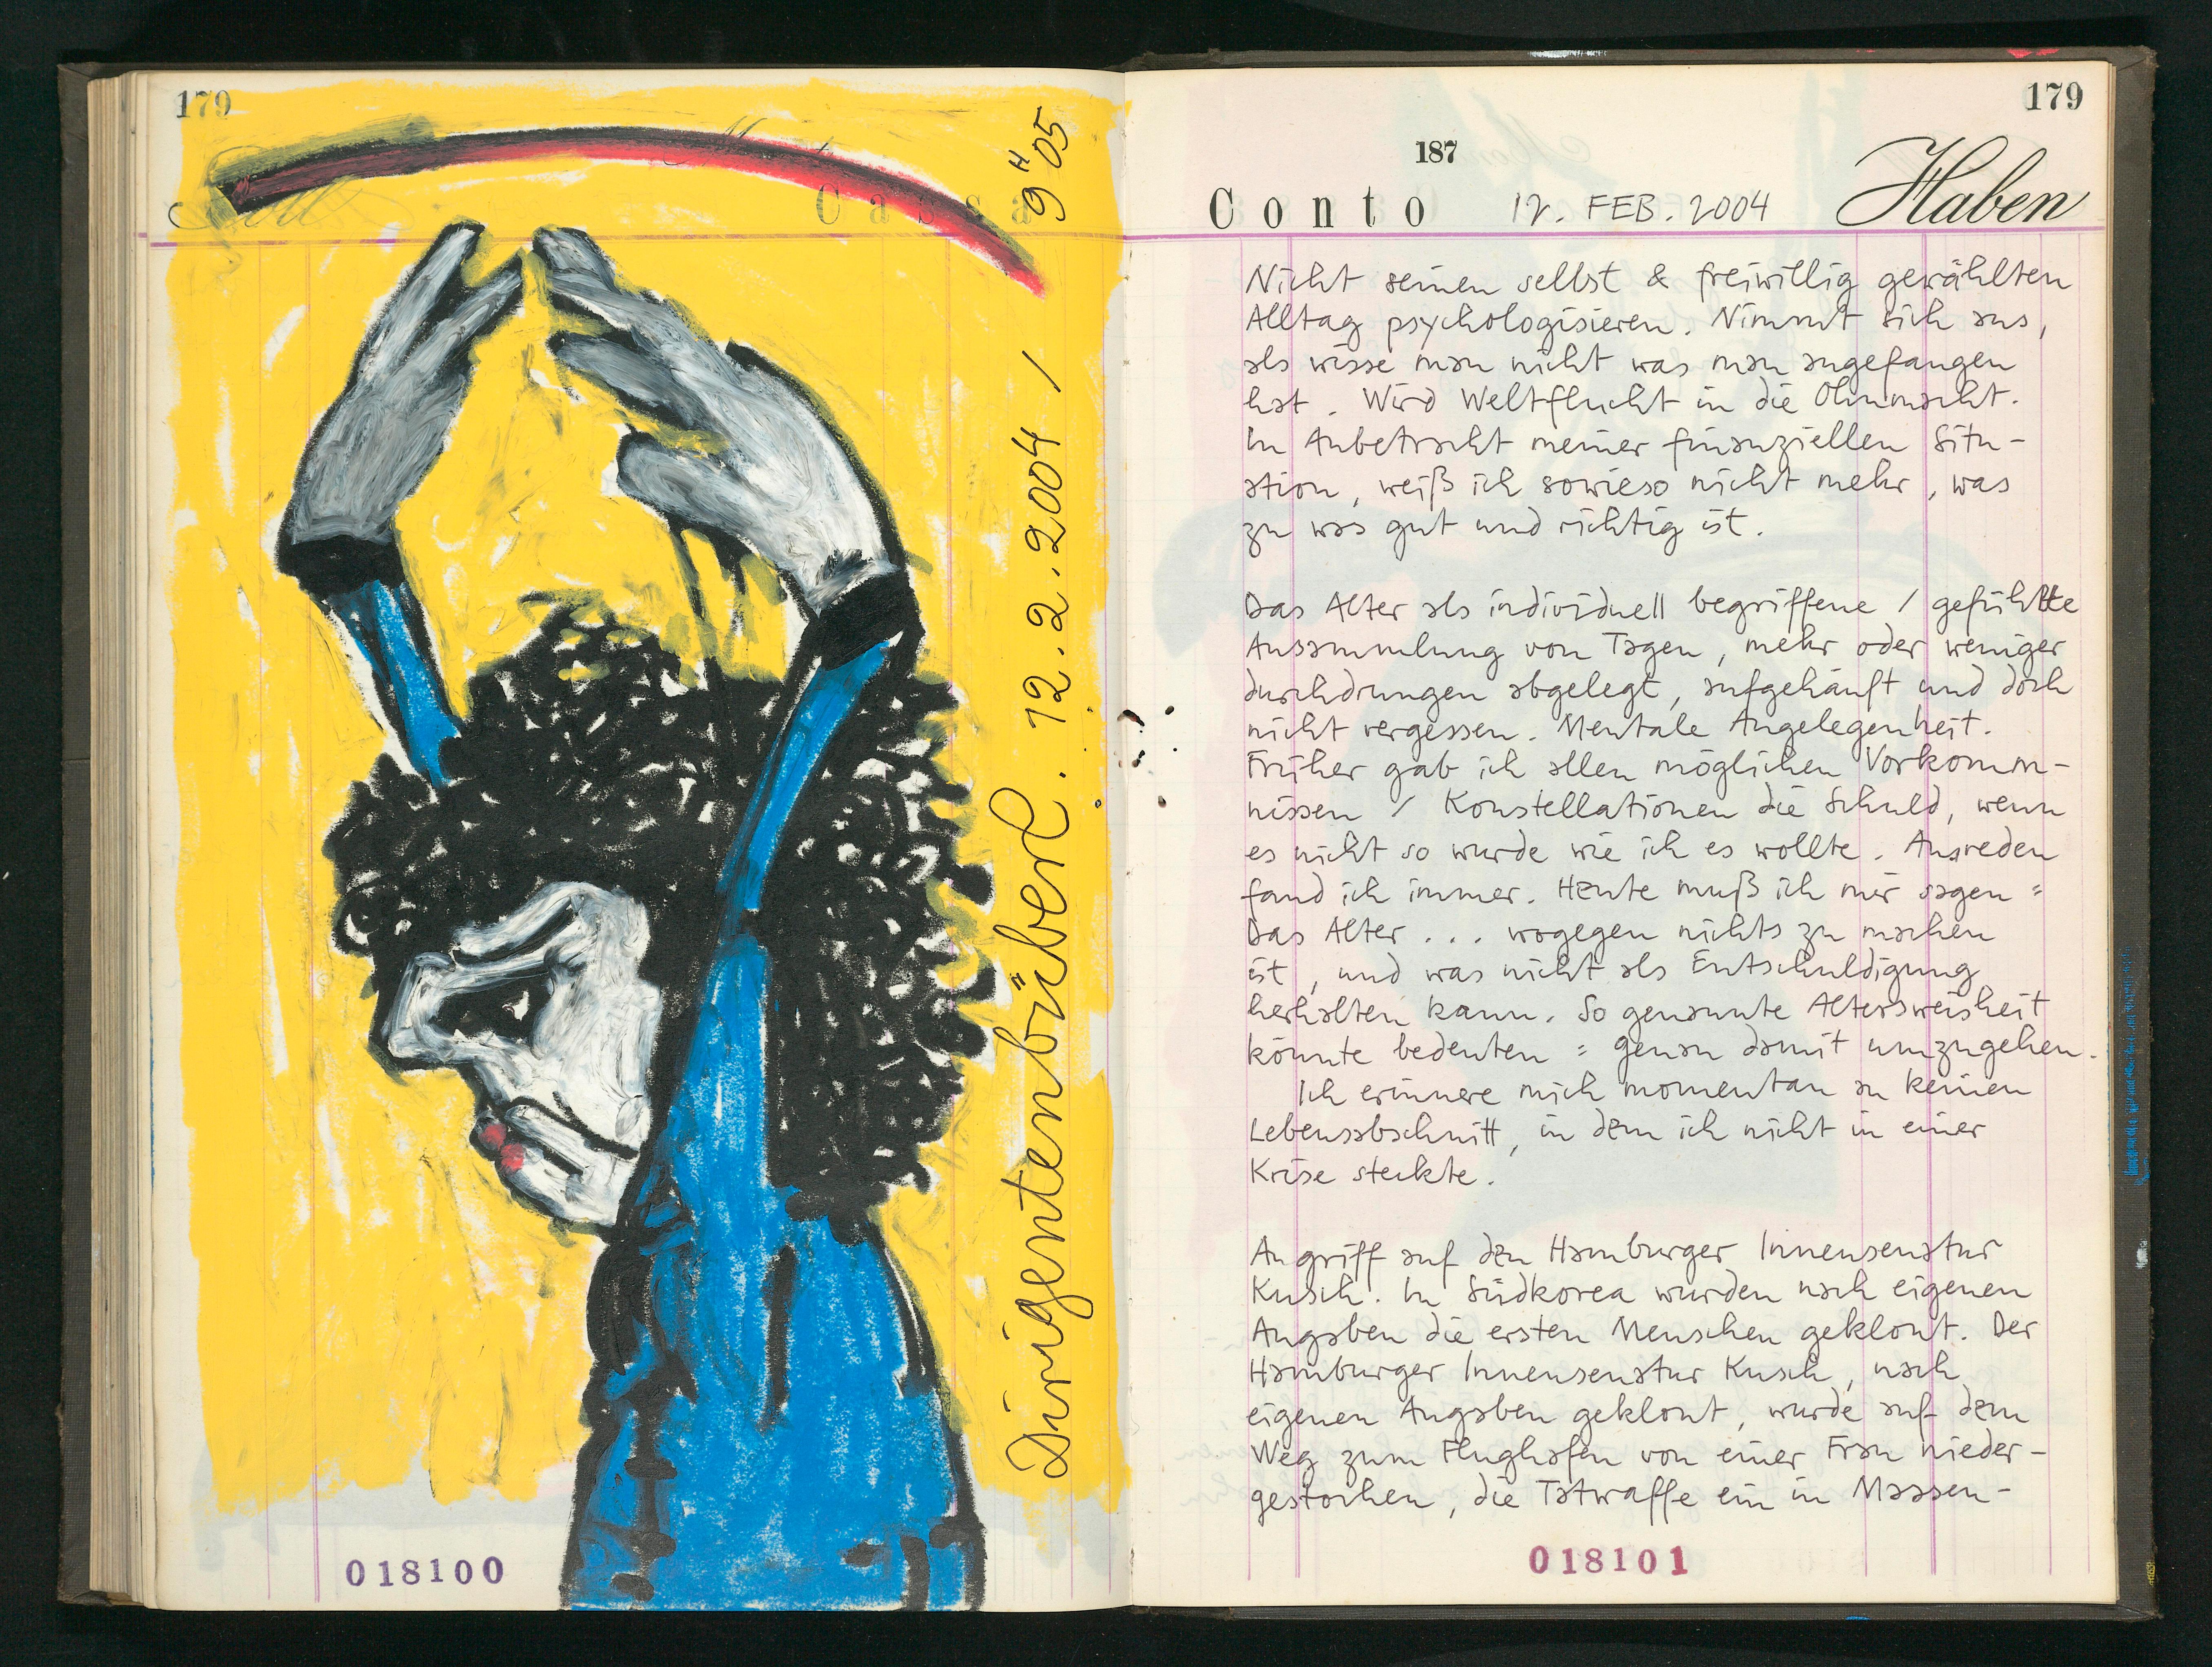 179
Soll
Cassa
Dirigentenbüberl. 12.2.2004 / 9H05
018100
179
187
Conto 12. FEB. 2004 Haben
Nicht seinen selbst & freiwillig gewählten
Alltag psychologisieren. Nimmt sich aus,
als wisse man nicht was man angefangen
hat. Wird Weltflucht in die Ohnmacht.
In Anbetracht meiner finanziellen Situ-
ation, weiß ich sowieso nicht mehr, was
zu was gut und richtig ist.
Das Alter als individuell begriffene / gefühlte
Ansammlung von Tagen, mehr oder weniger
durchdrungen abgelegt, aufgehäuft und doch
nicht vergessen. Mentale Angelegenheit.
Früher gab ich allen möglichen Vorkomm-
nissen / Konstellationen die Schuld, wenn
es nicht so wurde wie ich es wollte. Ausreden
fand ich immer. Heute muß ich mir sagen =
Das Alter ... wogegen nichts zu machen
ist, und was nicht als Entschuldigung
herhalten kann. So genannte Altersweisheit
könnte bedeuten = genau damit umzugehen.
Ich erinnere mich momentan an keinen
Lebensabschnitt, in dem ich nicht in einer
Krise steckte.
Angriff auf den Hamburger Innensenatur
Kusch. In Südkorea wurden nach eigenen
Angaben die ersten Menschen geklont. Der
Hamburger Innensenatur Kusch, nach
eigenen Angaben geklont, wurde auf dem
Weg zum Flughafen von einer Frau nieder-
gestochen, die Tatwaffe ein in Massen-
018101